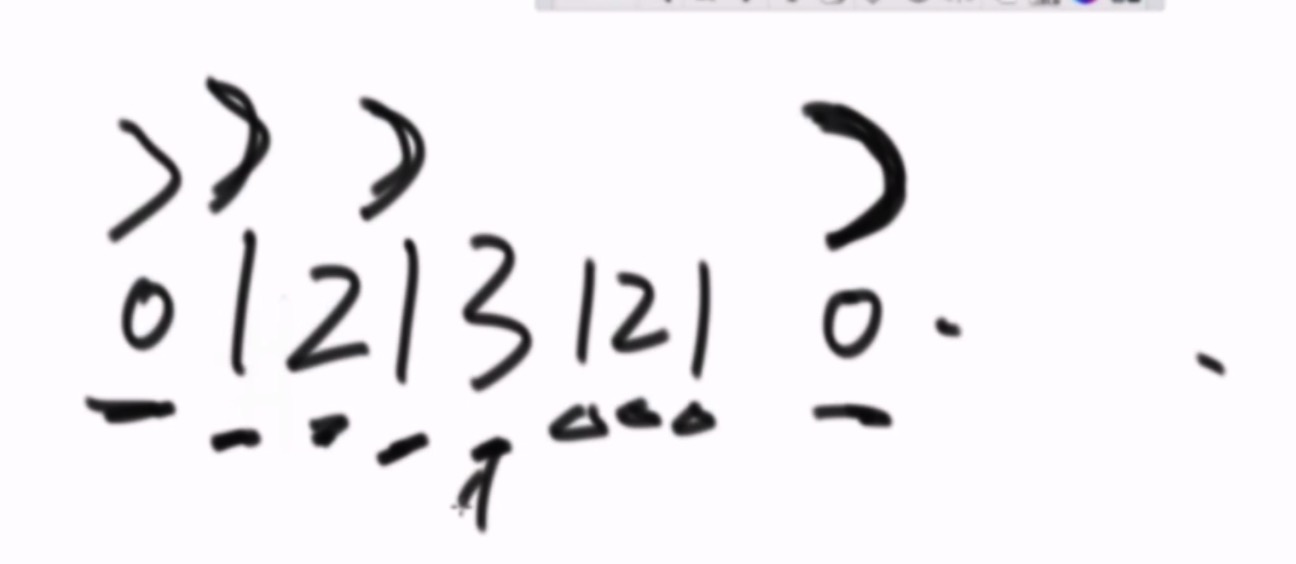 ) ) ) )
0 1 2 1 3 1 2 1 0 .